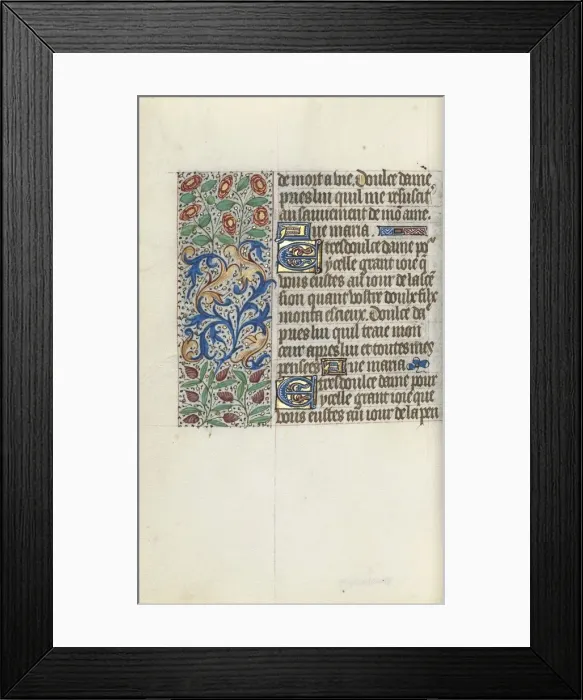 de mort a vie. Doulce dame
pries lui quil me resuscit
au sauvement de mō ame.
Aue maria
E tresdoulce dame po͛
ycelle grant ioie q̄
vous eustes au iour de lascē
sion quant vostre doulx filz
monta es cieux. Doulce da
pries lui quil traie mon
cueur apres lui et toutes mes
pensees Aue maria
E tresdoulce dame pour
ycelle grant ioie que
vous eustes au iour de la pen